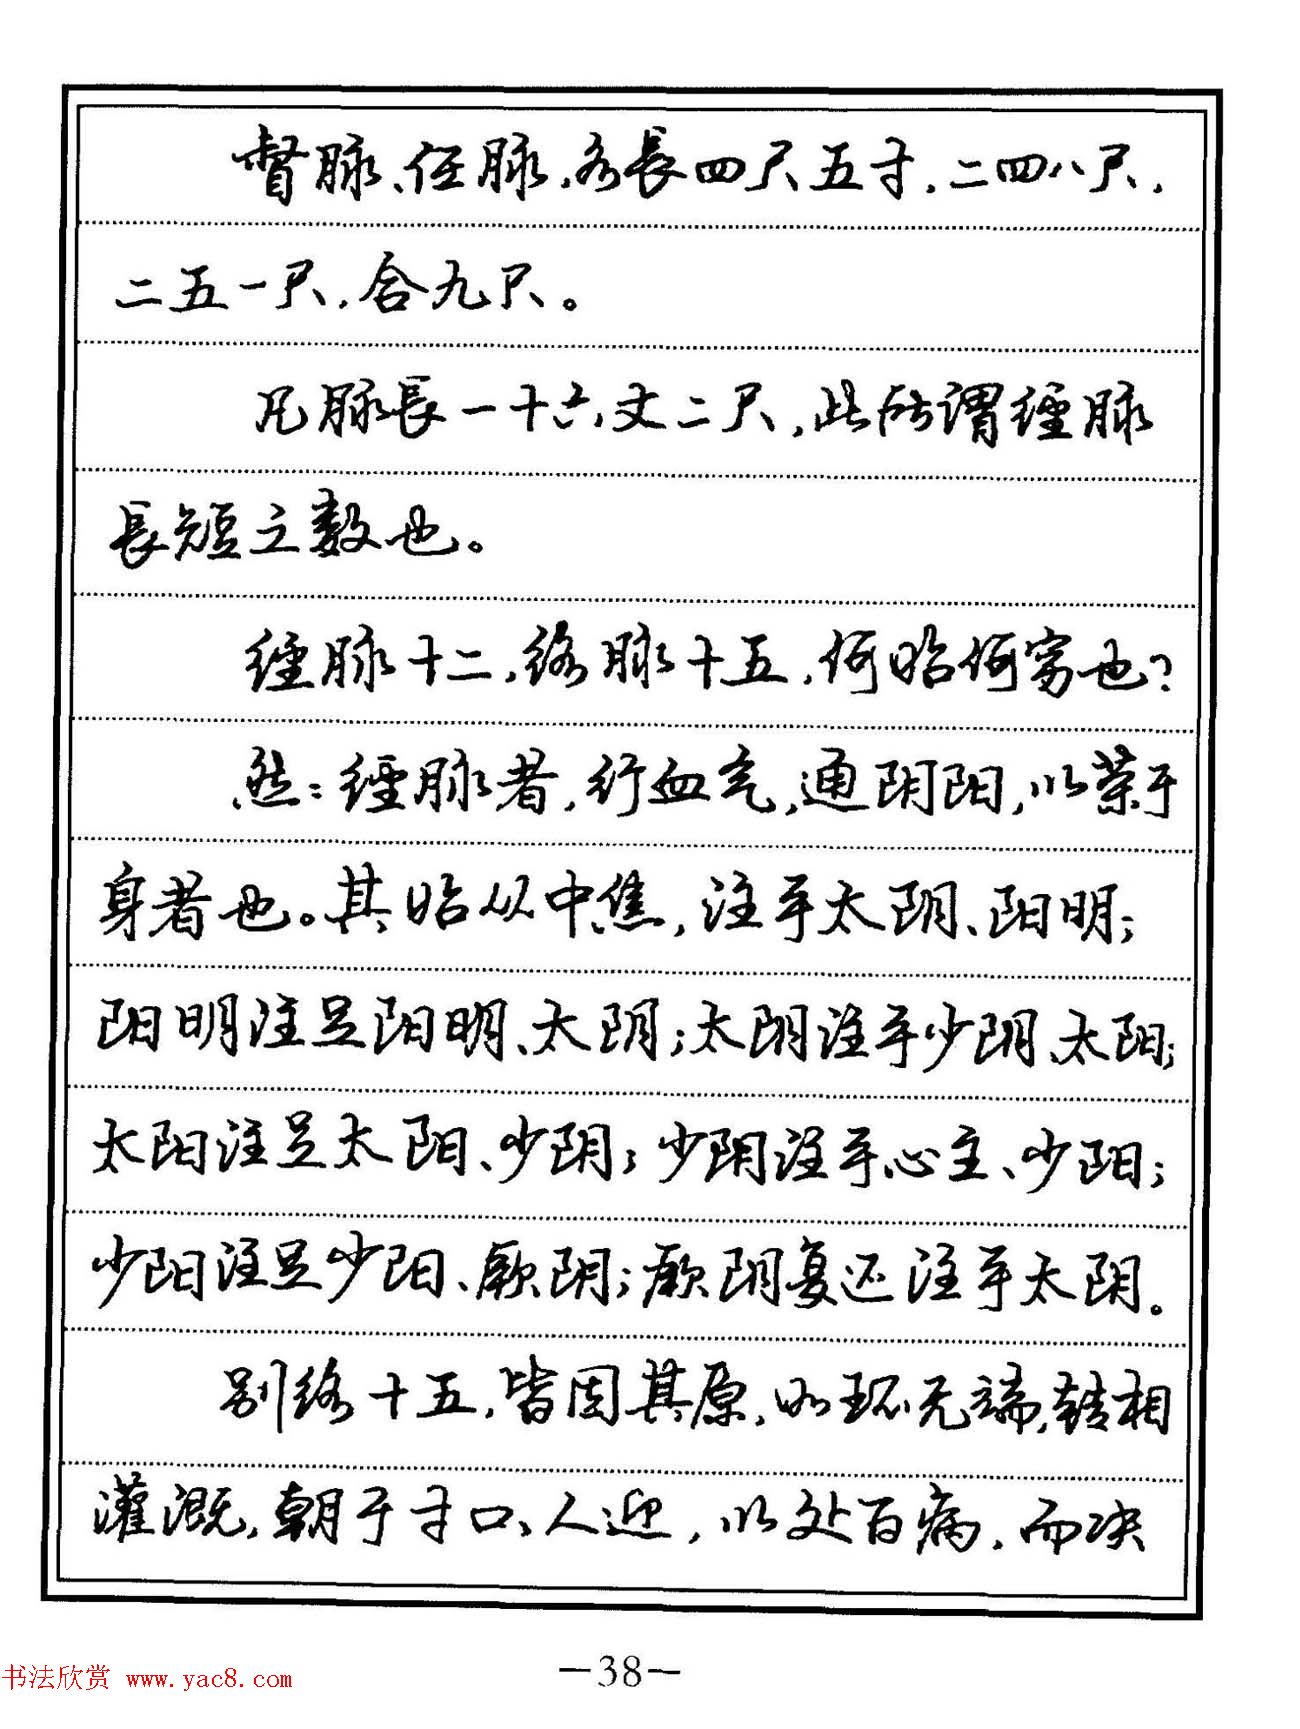 督脉、任脉,各長四尺五寸,二四八尺,
二五一尺,合九尺。
凡脉長一十六丈二尺,此所谓經脉
長短之数也。
經脉十二,络脉十五,何始何穷也?
然:經脉者,行血气,通阴阳,以荣于
身者也。其始从中焦,注手太阴、阳明;
阳明注足阳明、太阴;太阴注手少阴、太阳;
太阳注足太阳、少阴;少阴注手心主、少阳;
少阳注足少阳、厥阴;厥阴复还注手太阴。
别络十五,皆因其原,如环无端,转相
灌溉,朝于寸口、人迎,以处百病,而决
—38—
书法欣赏 www.yac8.com